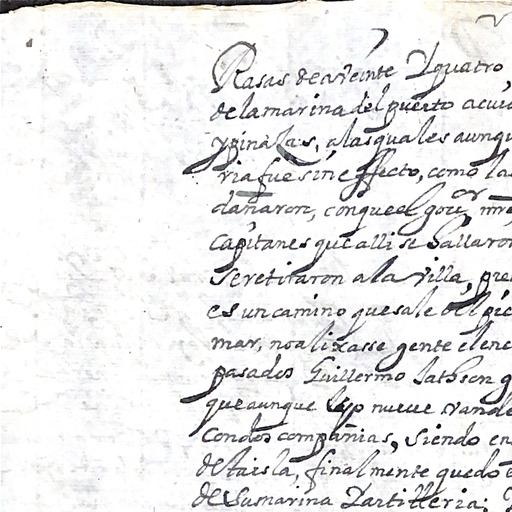 Rasas de a veinte y quatro,
de la marina del puerto a cuia
y pinazas, a las quales aunqu
ria fue sin effecto, como la
dañaron, con que el gor mre
capitanes que alli se hallaron
se retiraron a la villa, pre
es un camino que sale del pic
mar, no alixasse gente el ene
pasados Guillermo Jacson
que aunque
con dos compañias, siendo en
de taisla, finalmente quedo
de su marina y artilleria;